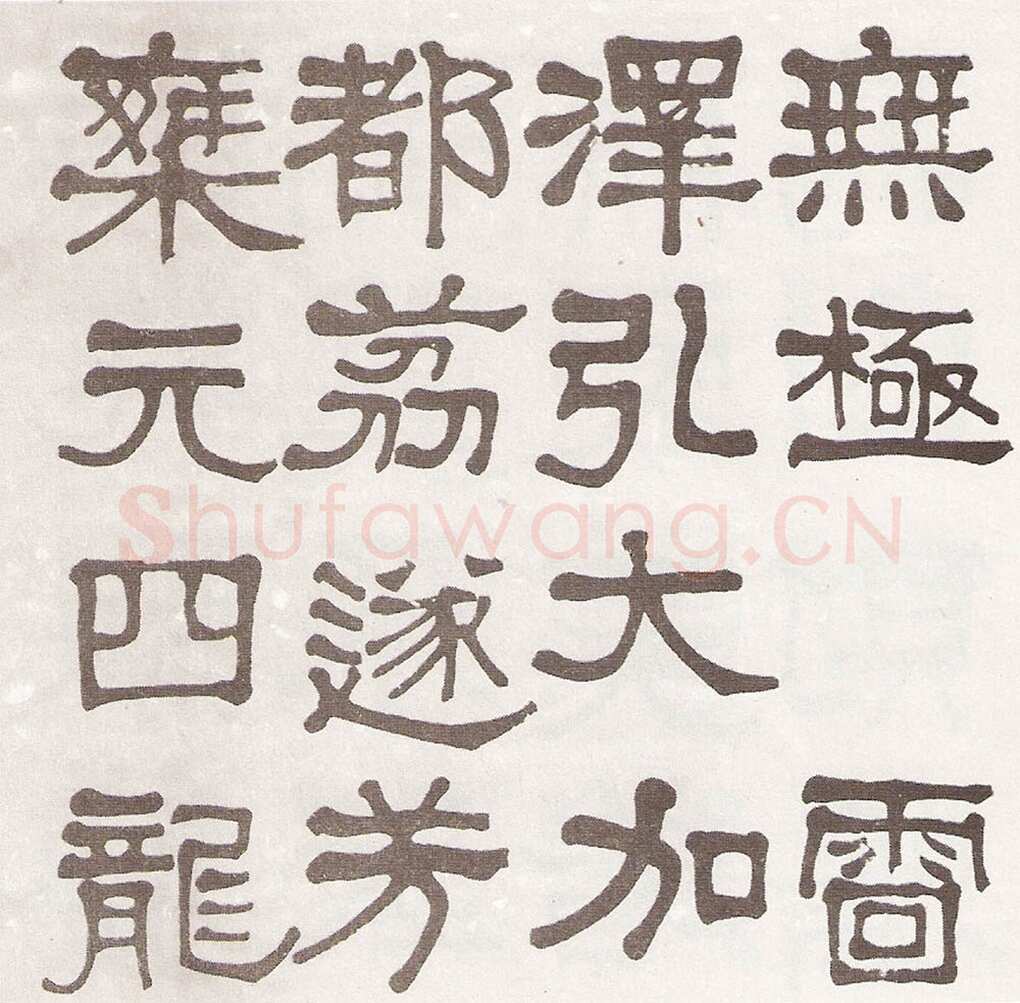 無極 雷
澤弘大加
都荔遂芳
乘元四龍
Shufawang.CN